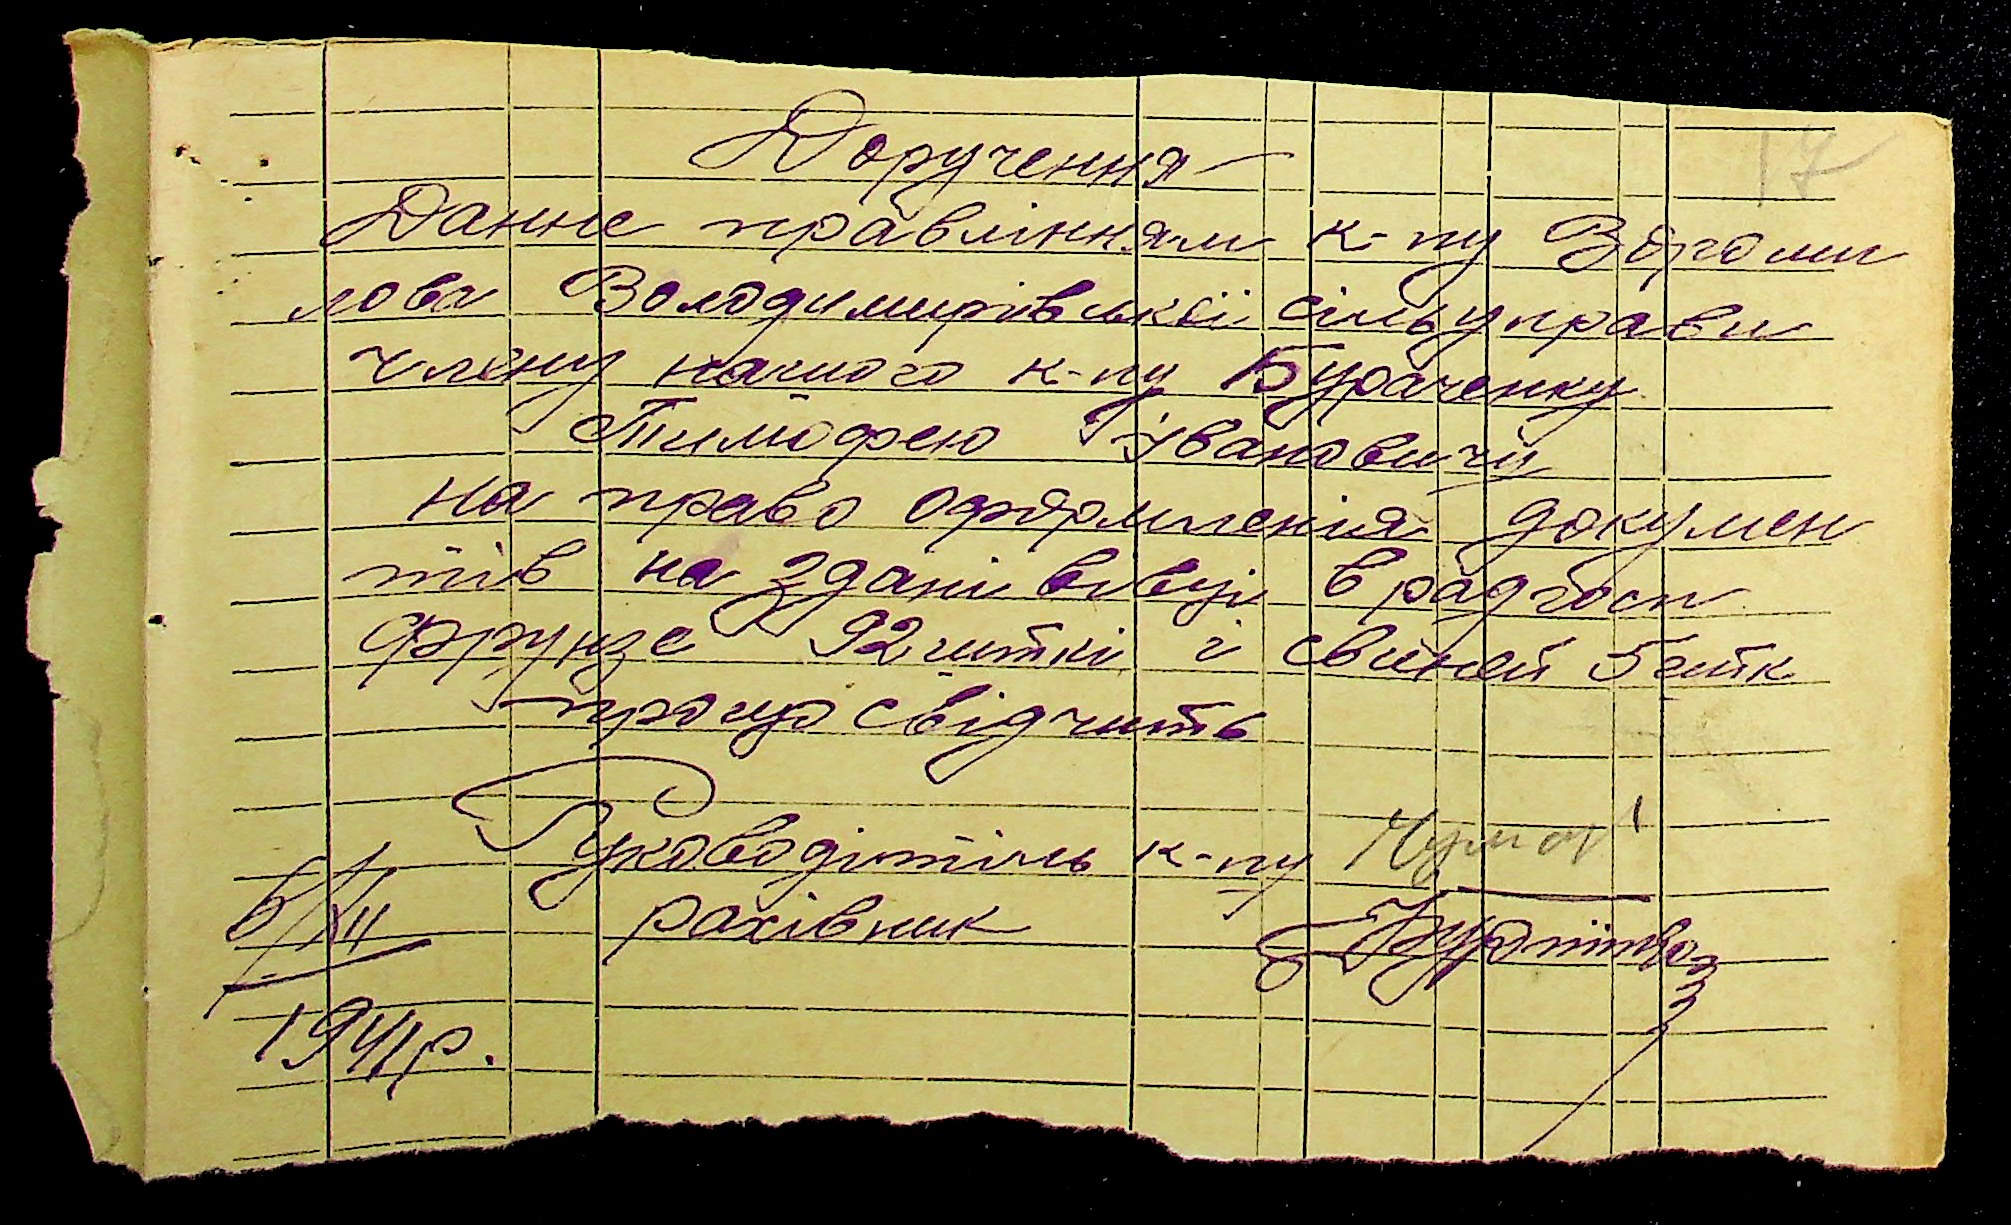 17
Доручення
Данне правлінням к-пу Вороши
лова Володимирівської сільуправи
члену нашого к-пу Бураченку
Тимофею Івановичу
на право офярмленія докумен
тів на здані вівці в радгосп
Фрунзе 92 шткі і свиней 5 штк
про що свідчить
Руководітіль к-пу
рахівник
6/XII
1941 р.